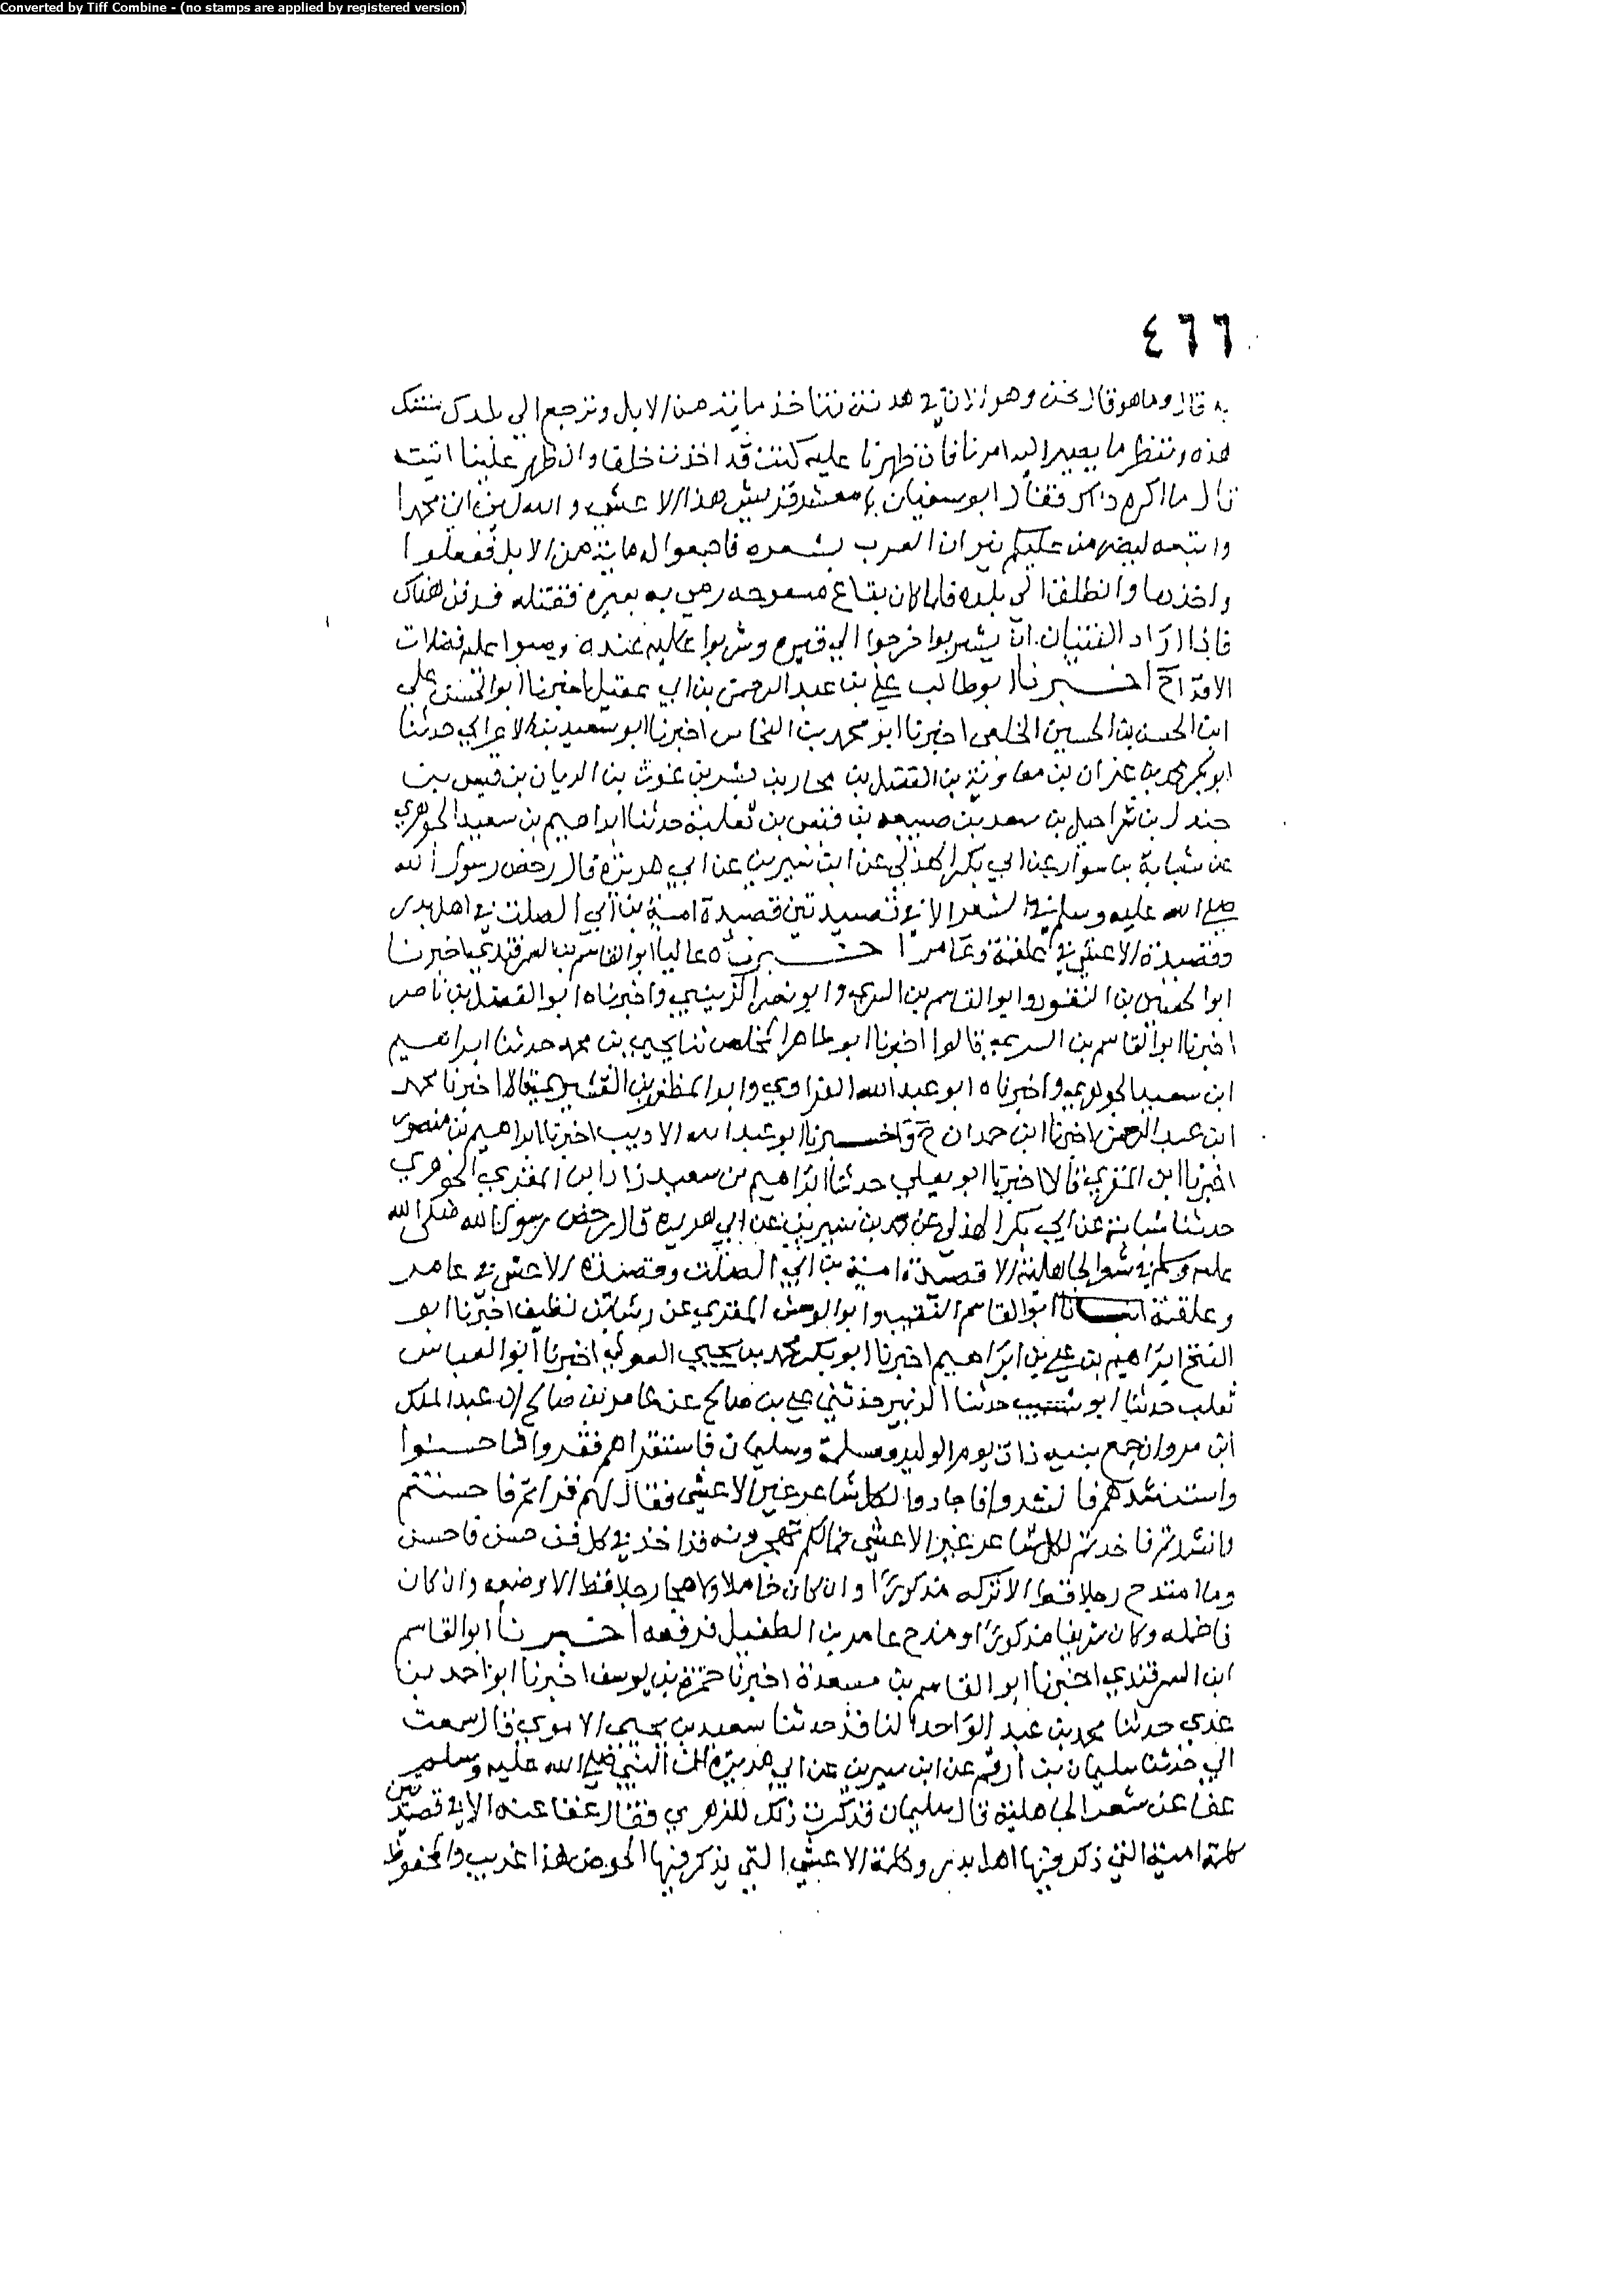 Converted by Tiff Combine - (no stamps are applied by registered version)
٤٦٦
به قال وما هو قال نحن وهو الان في هدنة فتاخذ ماية من الابل وترجع الي بلدك سنتك
هذه وننتظر ما يصير اليه امرنا فان ظهرنا عليه كنت قد اخذت خلفا وان ظهر علينا اتيته
قال ما اكره ذلك فقال ابو سفيان يا معشر قريش هذا الاعشي والله لين اتي محمدا
واتبعه ليضرمن عليكم نيران العرب بشعره فاجمعوا له ماية من الابل ففعلوا
واخذها وانطلق الي بلده فلما كان بقاع منفوحه رمي به بعيره فقتله فدفن هناك
فاذا اراد الفتيان ان يشربوا خرجوا الي قبره وشربوا عليه عنده وصبوا عليه فضلات
الاقداح اخبرنا ابو طالب علي بن عبد الرحمن بن ابي عقيل اخبرنا ابو الحسن علي
ابن الحسن بن الحسين الخلعي اخبرنا ابو محمد بن النحاس اخبرنا ابو سعيد بن الاعرابي حدثنا
ابو بكر محمد بن عمران بن معاوية بن بن محارب بن بشر بن غوث بن الريان بن قيس بن
جندل بن شراحيل بن سعد بن ضبيعه بن قيس بن ثعلبة حدثنا ابراهيم بن سعيد الجوهري
عن شبابة بن سوار عن ابي بكر الهذلي عن ابن سيرين عن ابي هريرة قال رخص رسول الله
صلي الله عليه وسلم في الشعر الا في قصيدتين قصيدة امية بن ابي الصلت في اهل بدر
وقصيدة الاعشي في علقمة وعامر اخبرناه عاليا ابو القاسم بن السمرقندي اخبرنا
ابو الحسين بن النقور وابو القاسم بن البسري وابو نصر الزينبي واخبرناه ابو الفضل بن ناصر
اخبرنا ابو القاسم بن البسري قالوا اخبرنا ابو طاهر المخلص ثنا يحيي بن محمد حدثنا ابراهيم
ابن سعيد الجوهري واخبرناه ابو عبد الله الفراوي وابو المظفر بن القشيري قالا اخبرنا محمد
ابن عبد الرحمن اخبرنا ابن حمدان ح واخبرنا ابو عبد الله الاديب اخبرنا ابراهيم بن منصور
اخبرنا ابن المقري قالا اخبرنا ابو يعلي حدثنا ابراهيم بن سعيد زاد ابن المقري الجوهري
حدثنا شبابة عن ابي بكر الهذلي عن محمد بن سيرين عن ابي هريرة قال رخص رسول الله صلى الله
عليه وسلم في شعر الجاهلية الا قصيدة امية بن ابي الصلت وقصيدة الاعشي في عامر
وعلقمة انبانا ابو القاسم النسيب وابو الوحش المقري عن رشا بن نظيف اخبرنا ابو
الفتح ابراهيم بن علي بن ابراهيم اخبرنا ابو بكر محمد بن يحيي الصولي اخبرنا ابو العباس
ثعلب حدثنا ابو شبيب حدثنا الزبير حدثني علي بن صالح عن عامر بن صالح ان عبد الملك
ابن مروان جمع بنيه ذات يوم الوليد ومسلمة وسليمان فاستقراهم فقروا فاحسنوا
واستنشدهم فانشدوا فاجادوا لكل شاعر غير الاعشي فقال لهم قراتم فاحسنتم
وانشدتم فاجدتم لكل شاعر غير الاعشي فمالكم تهجرونه فقد اخذ في كل فن حسن فاحسن
وما امتدح رجلا قط الا تركه مذكورا وان كان خاملا ولا هجا رجلا قط الا وضعه وان كان
وكان شريفا مذكورا ومدح عامر بن الطفيل فرفعه اخبرنا ابو القاسم
ابن السمرقندي اخبرنا ابو القاسم بن مسعدة اخبرنا حمزة بن يوسف اخبرنا ابو احمد بن
عدي حدثنا محمد بن عبد الواحد الناقد حدثنا سعيد بن يحيي الاموي قال سمعت
ابي حدثنا سليمان بن ارقم عن ابن سيرين عن ابي هريرة ان النبي صلي الله عليه وسلم
عفا عن شعر الجاهلية قال سليمان فذكرت ذلك للزهري فقال عفا عنه الا في قصيدتين
كلمة امية التي ذكر فيها اهل بدر وكلمة الاعشي التي يذكر فيها الحوض هذا غريب والمحفوظ